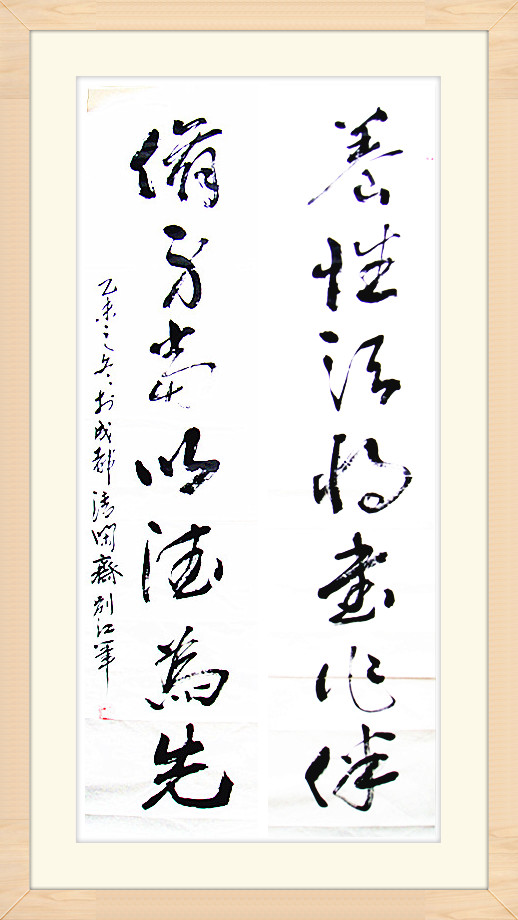 養性須將書作伴
脩身當以德為先
乙未之冬於成都清閑齋刘江軍